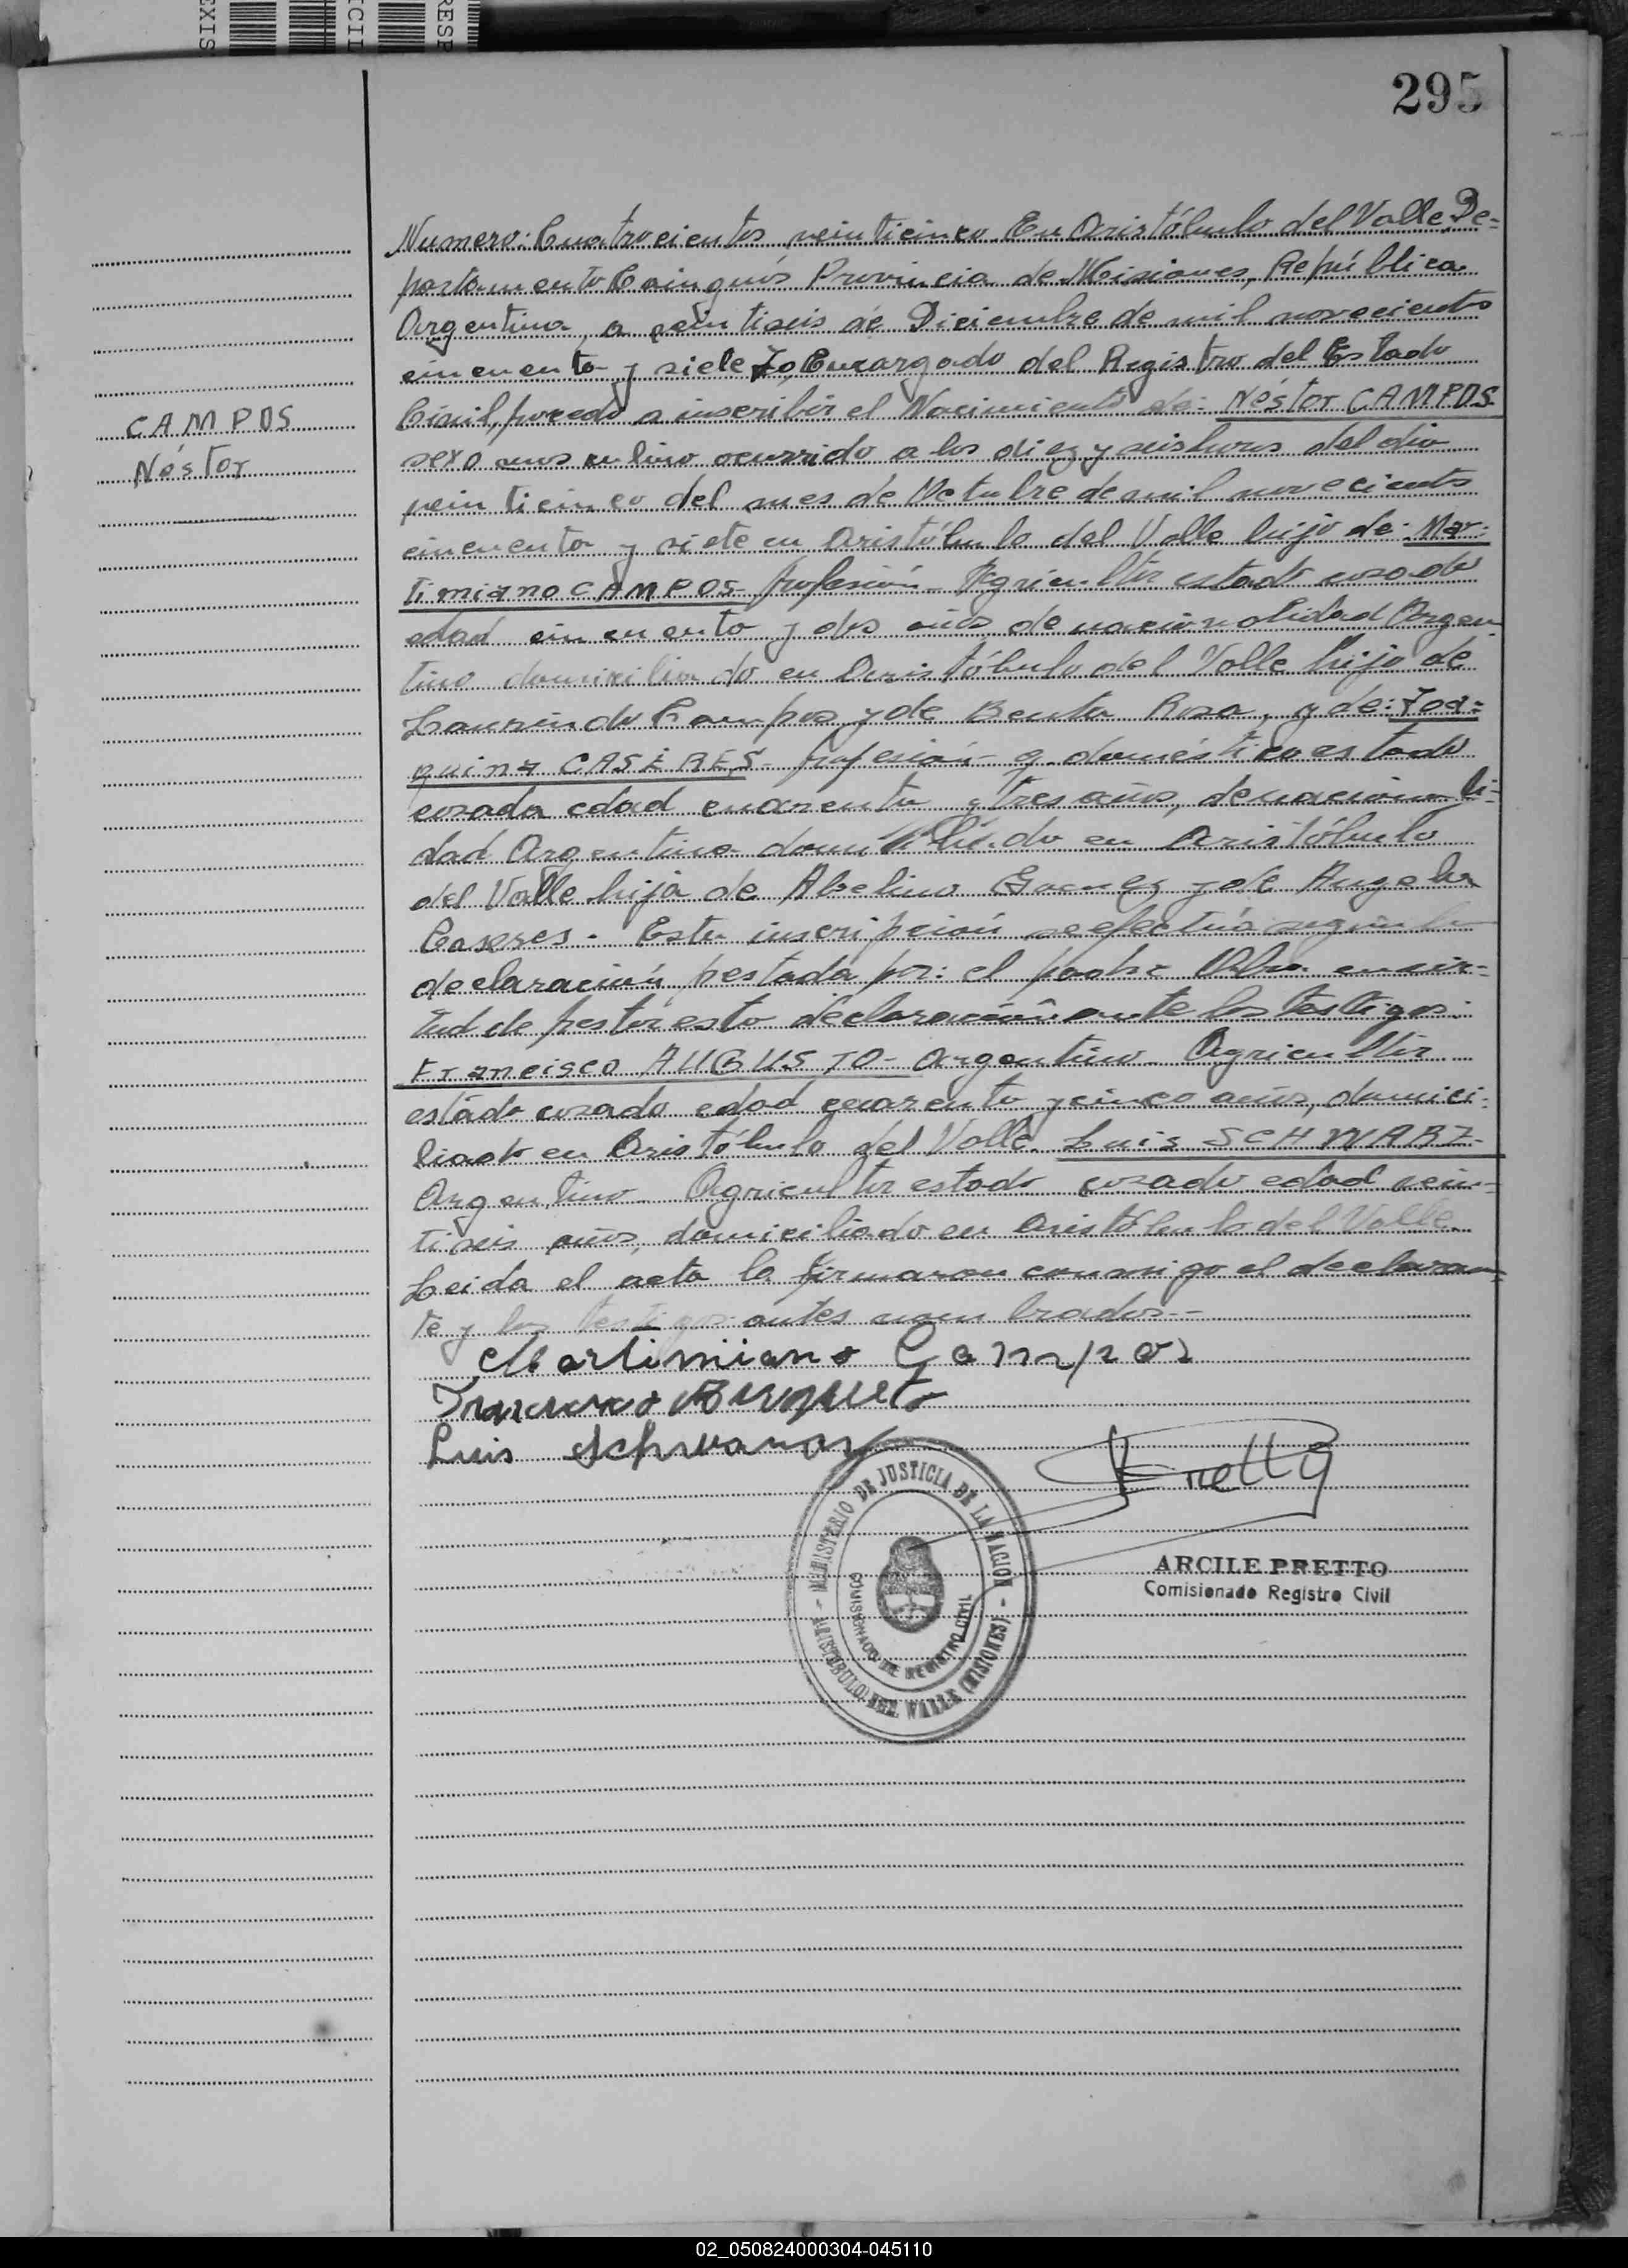 295
Numero: Cuatrocientos veinticinco. En Aristóbulo del Valle, De=
partamento Cainguás Provincia de Misiones, República
Argentina, a veintiseis de Diciembre de mil novecientos
cincuenta y siete Yo, Encargado del Registro del Estado
Civil, procedo a inscribir el Nacimiento de: Néstor CAMPOS
CAMPOS
Néstor
sexo masculino ocurrido a los diez y seis horas del dia
veinticinco del mes de Octubre de mil novecientos
cincuenta y siete en Aristóbulo del Valle hijo de: Mar=
timiano CAMPOS- profesión- Agricultor estado casado
edad cincuenta y dos años de nacionalidad Argen
tino domiciliado en Aristóbulo del Valle hijo de
Laurindo Campos y de Benta Rosa, y de: Joa=
quina CASERES- profesión- q. doméstico estado
casada edad cuarenta y tres años, de nacionali=
dad Argentina domiciliado en Aristóbulo
del Valle hija de Abelino y de Angela
Caseres.- Esta inscripción se efectúa según la
declaración prestada por: el padre en vir=
tud de prestar esta declaración ante los testigos:
Francisco AUGUSTO- Argentino- Agricultor
estado casado edad cuarenta y cinco años, domici=
liado en Aristóbulo del Valle. Luis SCHWARZ-
Argentino- Agricultor estado casado edad vein=
tiseis años, domiciliado en Aristóbulo del Valle.
Leida el acta la firmaron conmigo el declaran
te y los testigos antes nombrados--
Martimiano Campos
Luis
MINISTERIO DE JUSTICIA DE LA NACION
COMISIONADO DE REGISTRO CIVIL
- ARISTOBULO DEL VALLE (MISIONES) -
ARCILE PRETTO
Comisionado Registro Civil
02_050824000304-045110